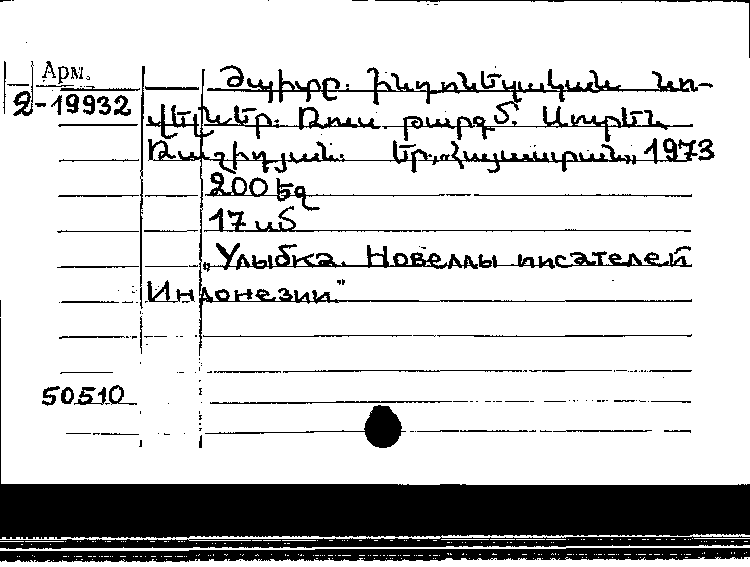 Арм.
2-19932
Ժպիտը. ինդոնեզական նո-
վելներ. Ռուս. թարգմ. Սուրեն
Ռաշիդյան. Եր., «Հայաստան», 1973
200 եզ
17 սմ
„Улыбка. Новеллы писателей
Индонезии."
50510